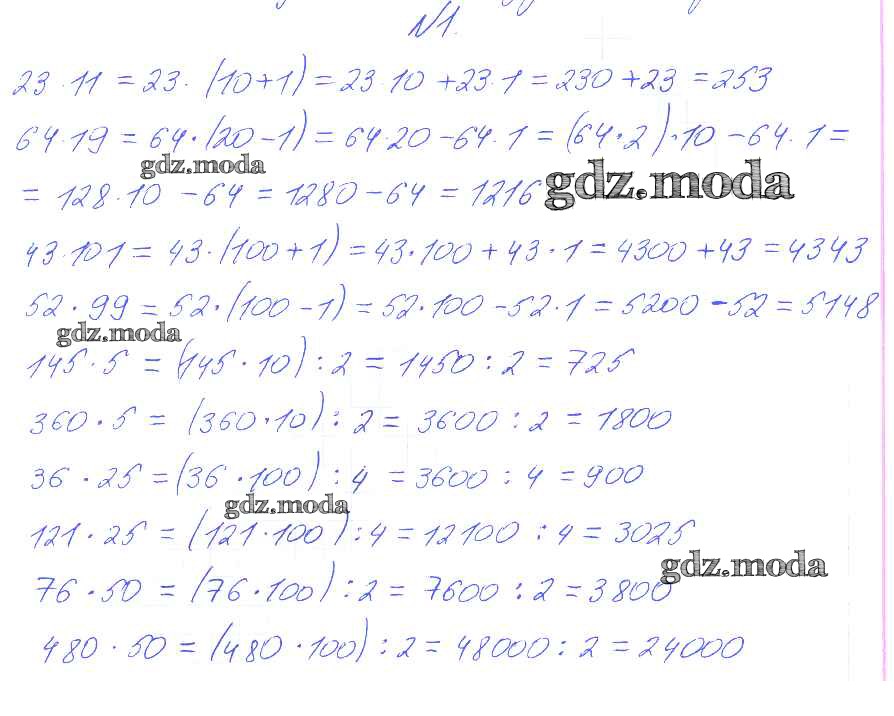 №1.
23·11 = 23·(10+1) = 23·10 + 23·1 = 230 + 23 = 253
64·19 = 64·(20-1) = 64·20 - 64·1 = (64·2)·10 - 64·1 =
gdz.moda
= 128·10 - 64 = 1280 - 64 = 1216
gdz.moda
43·101 = 43·(100+1) = 43·100 + 43·1 = 4300 + 43 = 4343
52·99 = 52·(100-1) = 52·100 - 52·1 = 5200 - 52 = 5148
gdz.moda
145·5 = (145·10) : 2 = 1450 : 2 = 725
360·5 = (360·10) : 2 = 3600 : 2 = 1800
36·25 = (36·100) : 4 = 3600 : 4 = 900
gdz.moda
121·25 = (121·100) : 4 = 12100 : 4 = 3025
gdz.moda
76·50 = (76·100) : 2 = 7600 : 2 = 3800
480·50 = (480·100) : 2 = 48000 : 2 = 24000